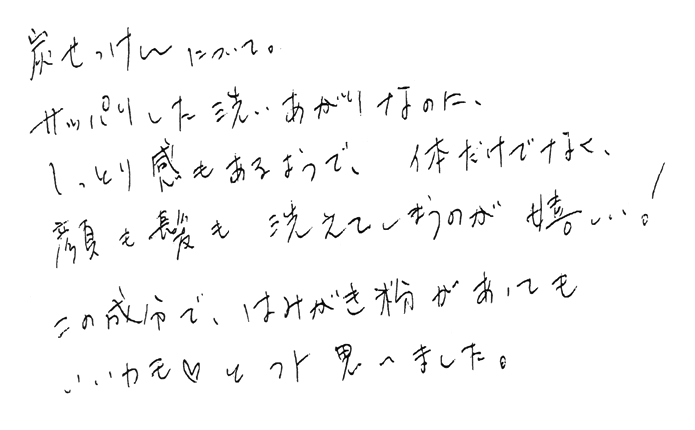 炭せっけんについて。
サッパリした洗いあがりなのに、
しっとり感もあるようで、体だけでなく、
顔も髪も洗えてしまうのが嬉しい。!
この成分で、はみがき粉があっても
いいカモ♡とフト思いました。